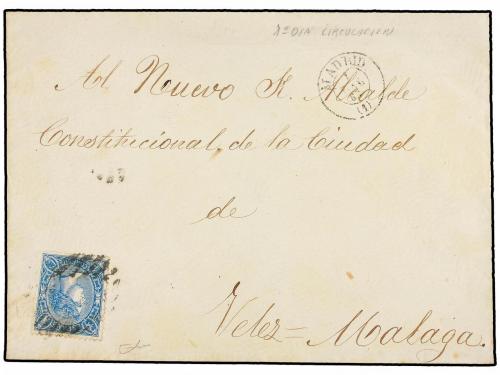 1º DIA CIRCULACION
MADRID
(1)
Al Nuevo K. Alcalde
Constitucional, de la Ciudad
de
Velez=Malaga.